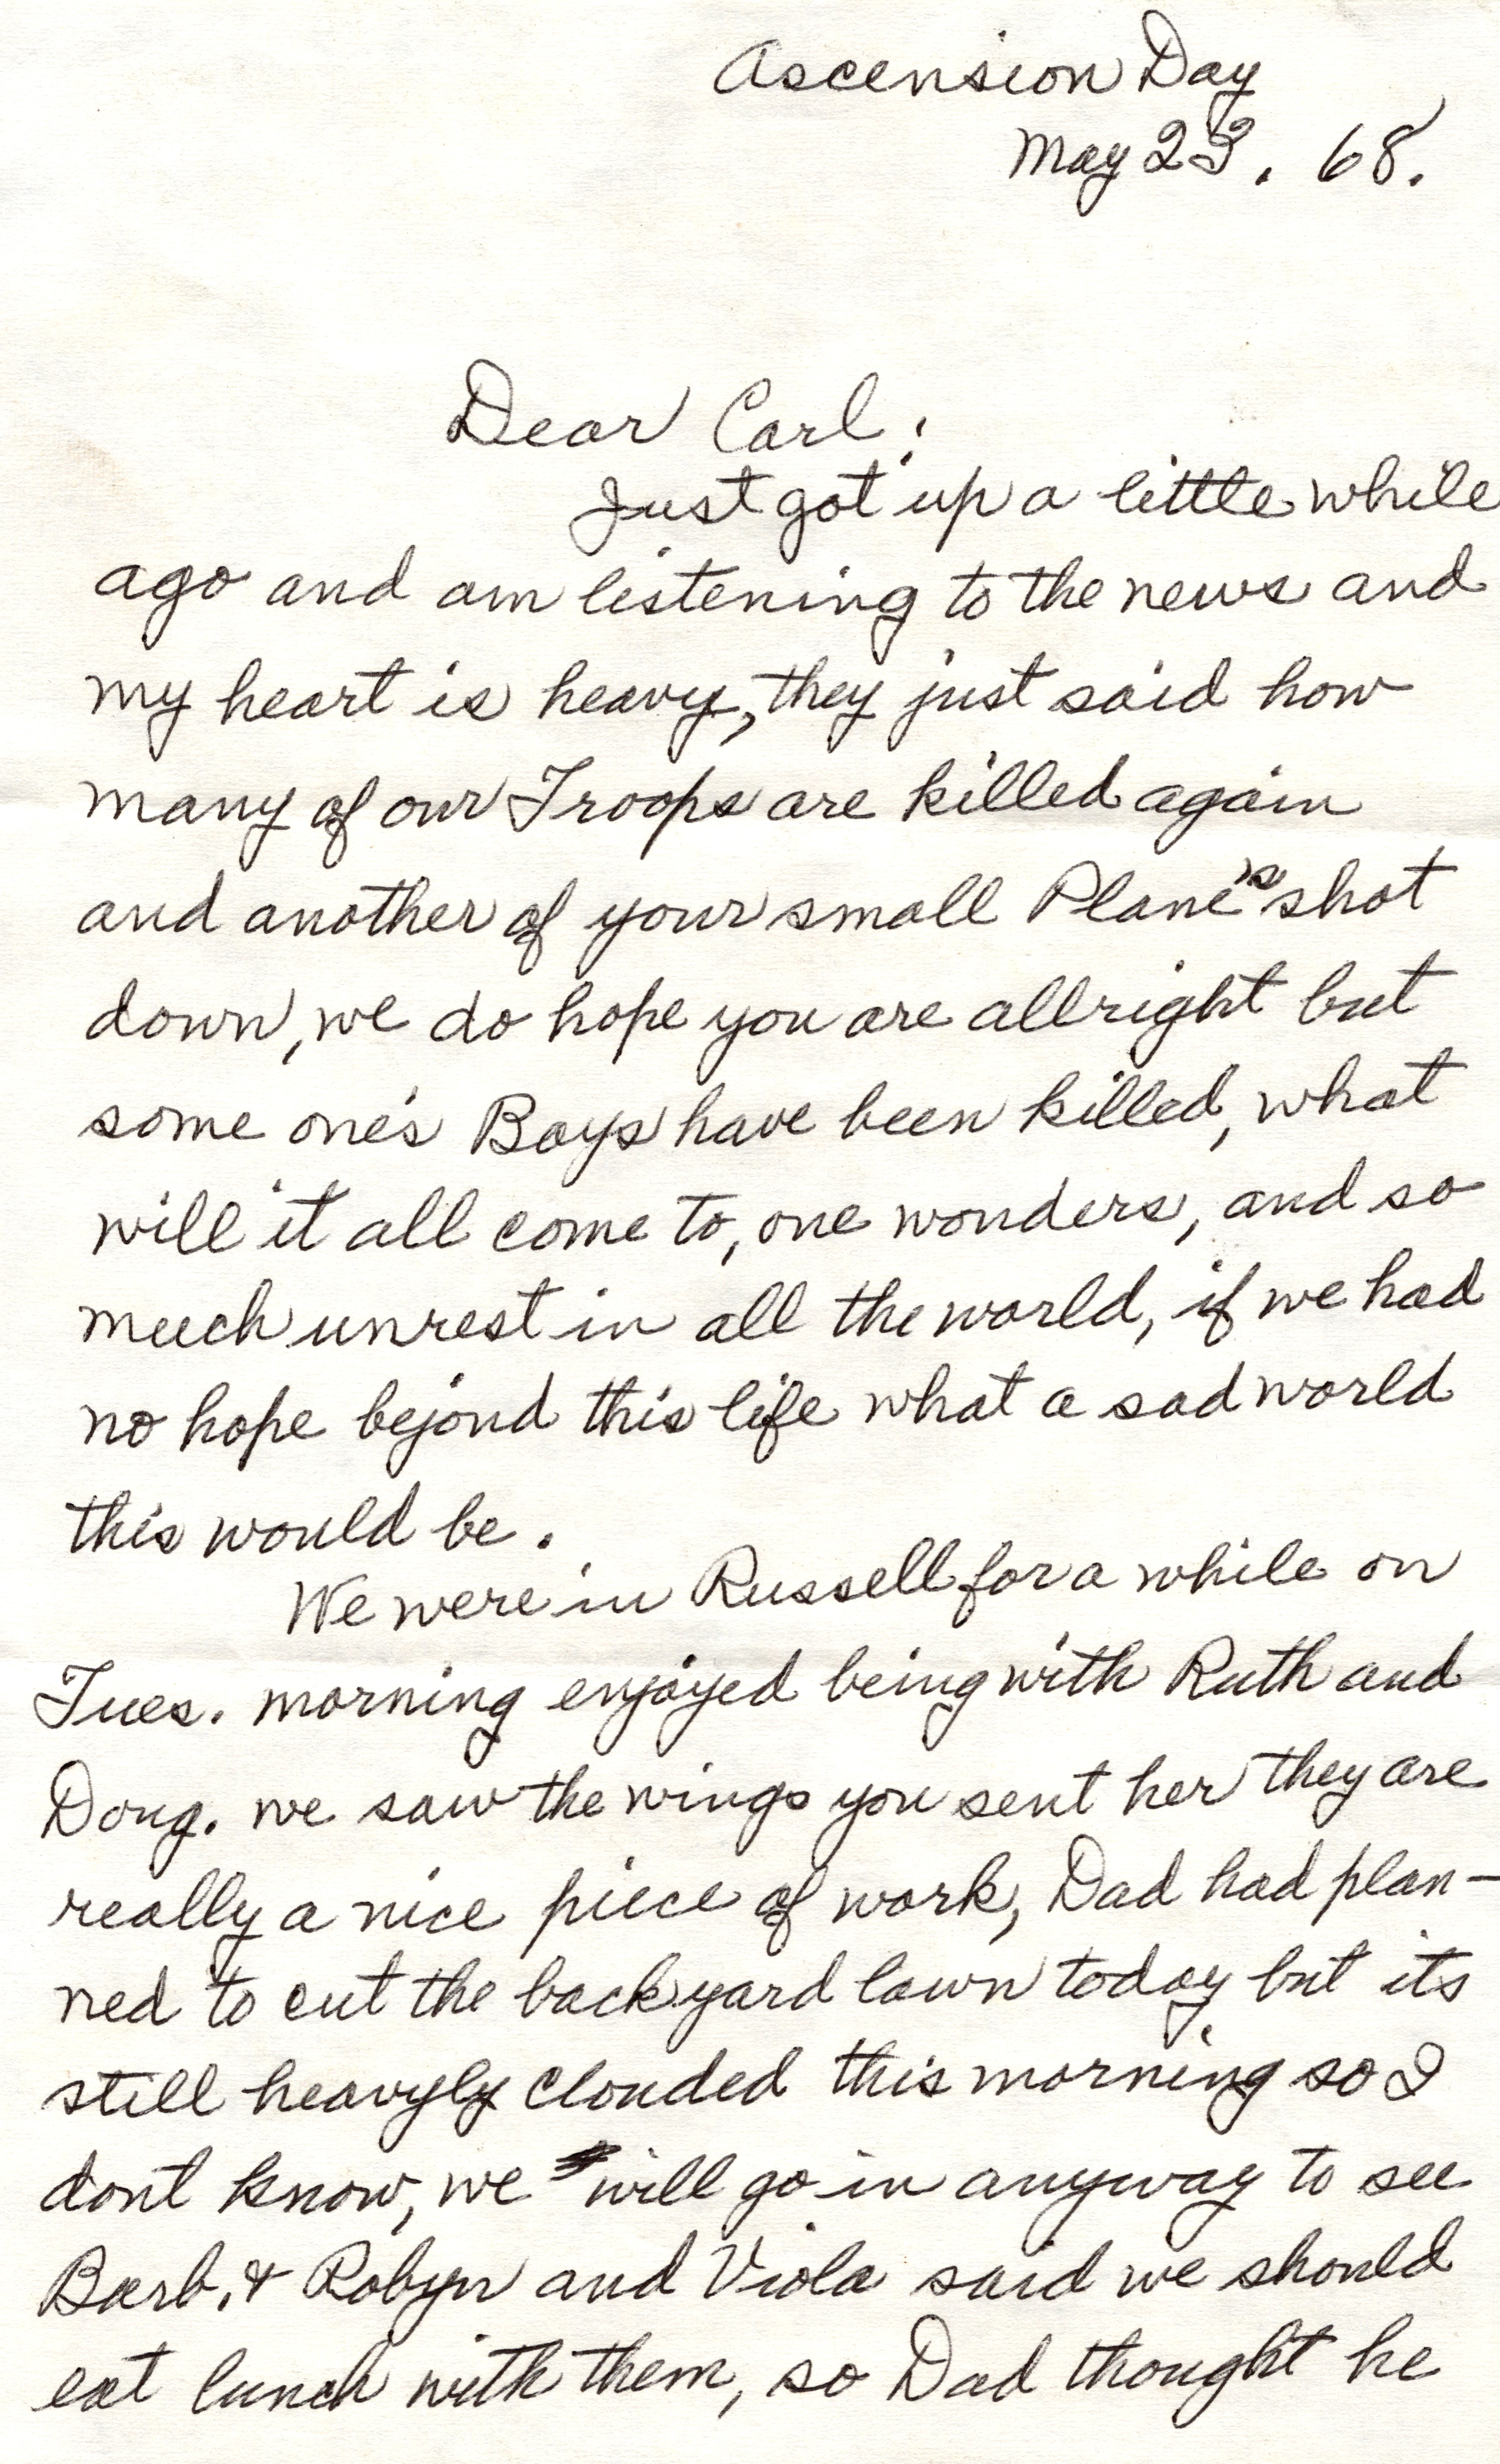 Ascension Day
May 23. 68.
Dear Carl;
Just got up a little while
ago and am listening to the news and
my heart is heavy, they just said how
many of our Troops are killed again
and another of your small Plane's shot
down, we do hope you are allright but
some one's Boys have been killed, what
will it all come to, one wonders, and so
much unrest in all the world, if we had
no hope bejond this life what a sad world
this would be.
We were in Russell for a while on
Tues. morning enjoyed being with Ruth and
Doug. we saw the wings you sent her they are
really a nice piece of work, Dad had plan-
ned to cut the back yard lawn today but its
still heavyly clouded this morning so I
dont know, we will go in anyway to see
Barb. & Robyn and Viola said we should
eat lunch with them, so Dad thought he